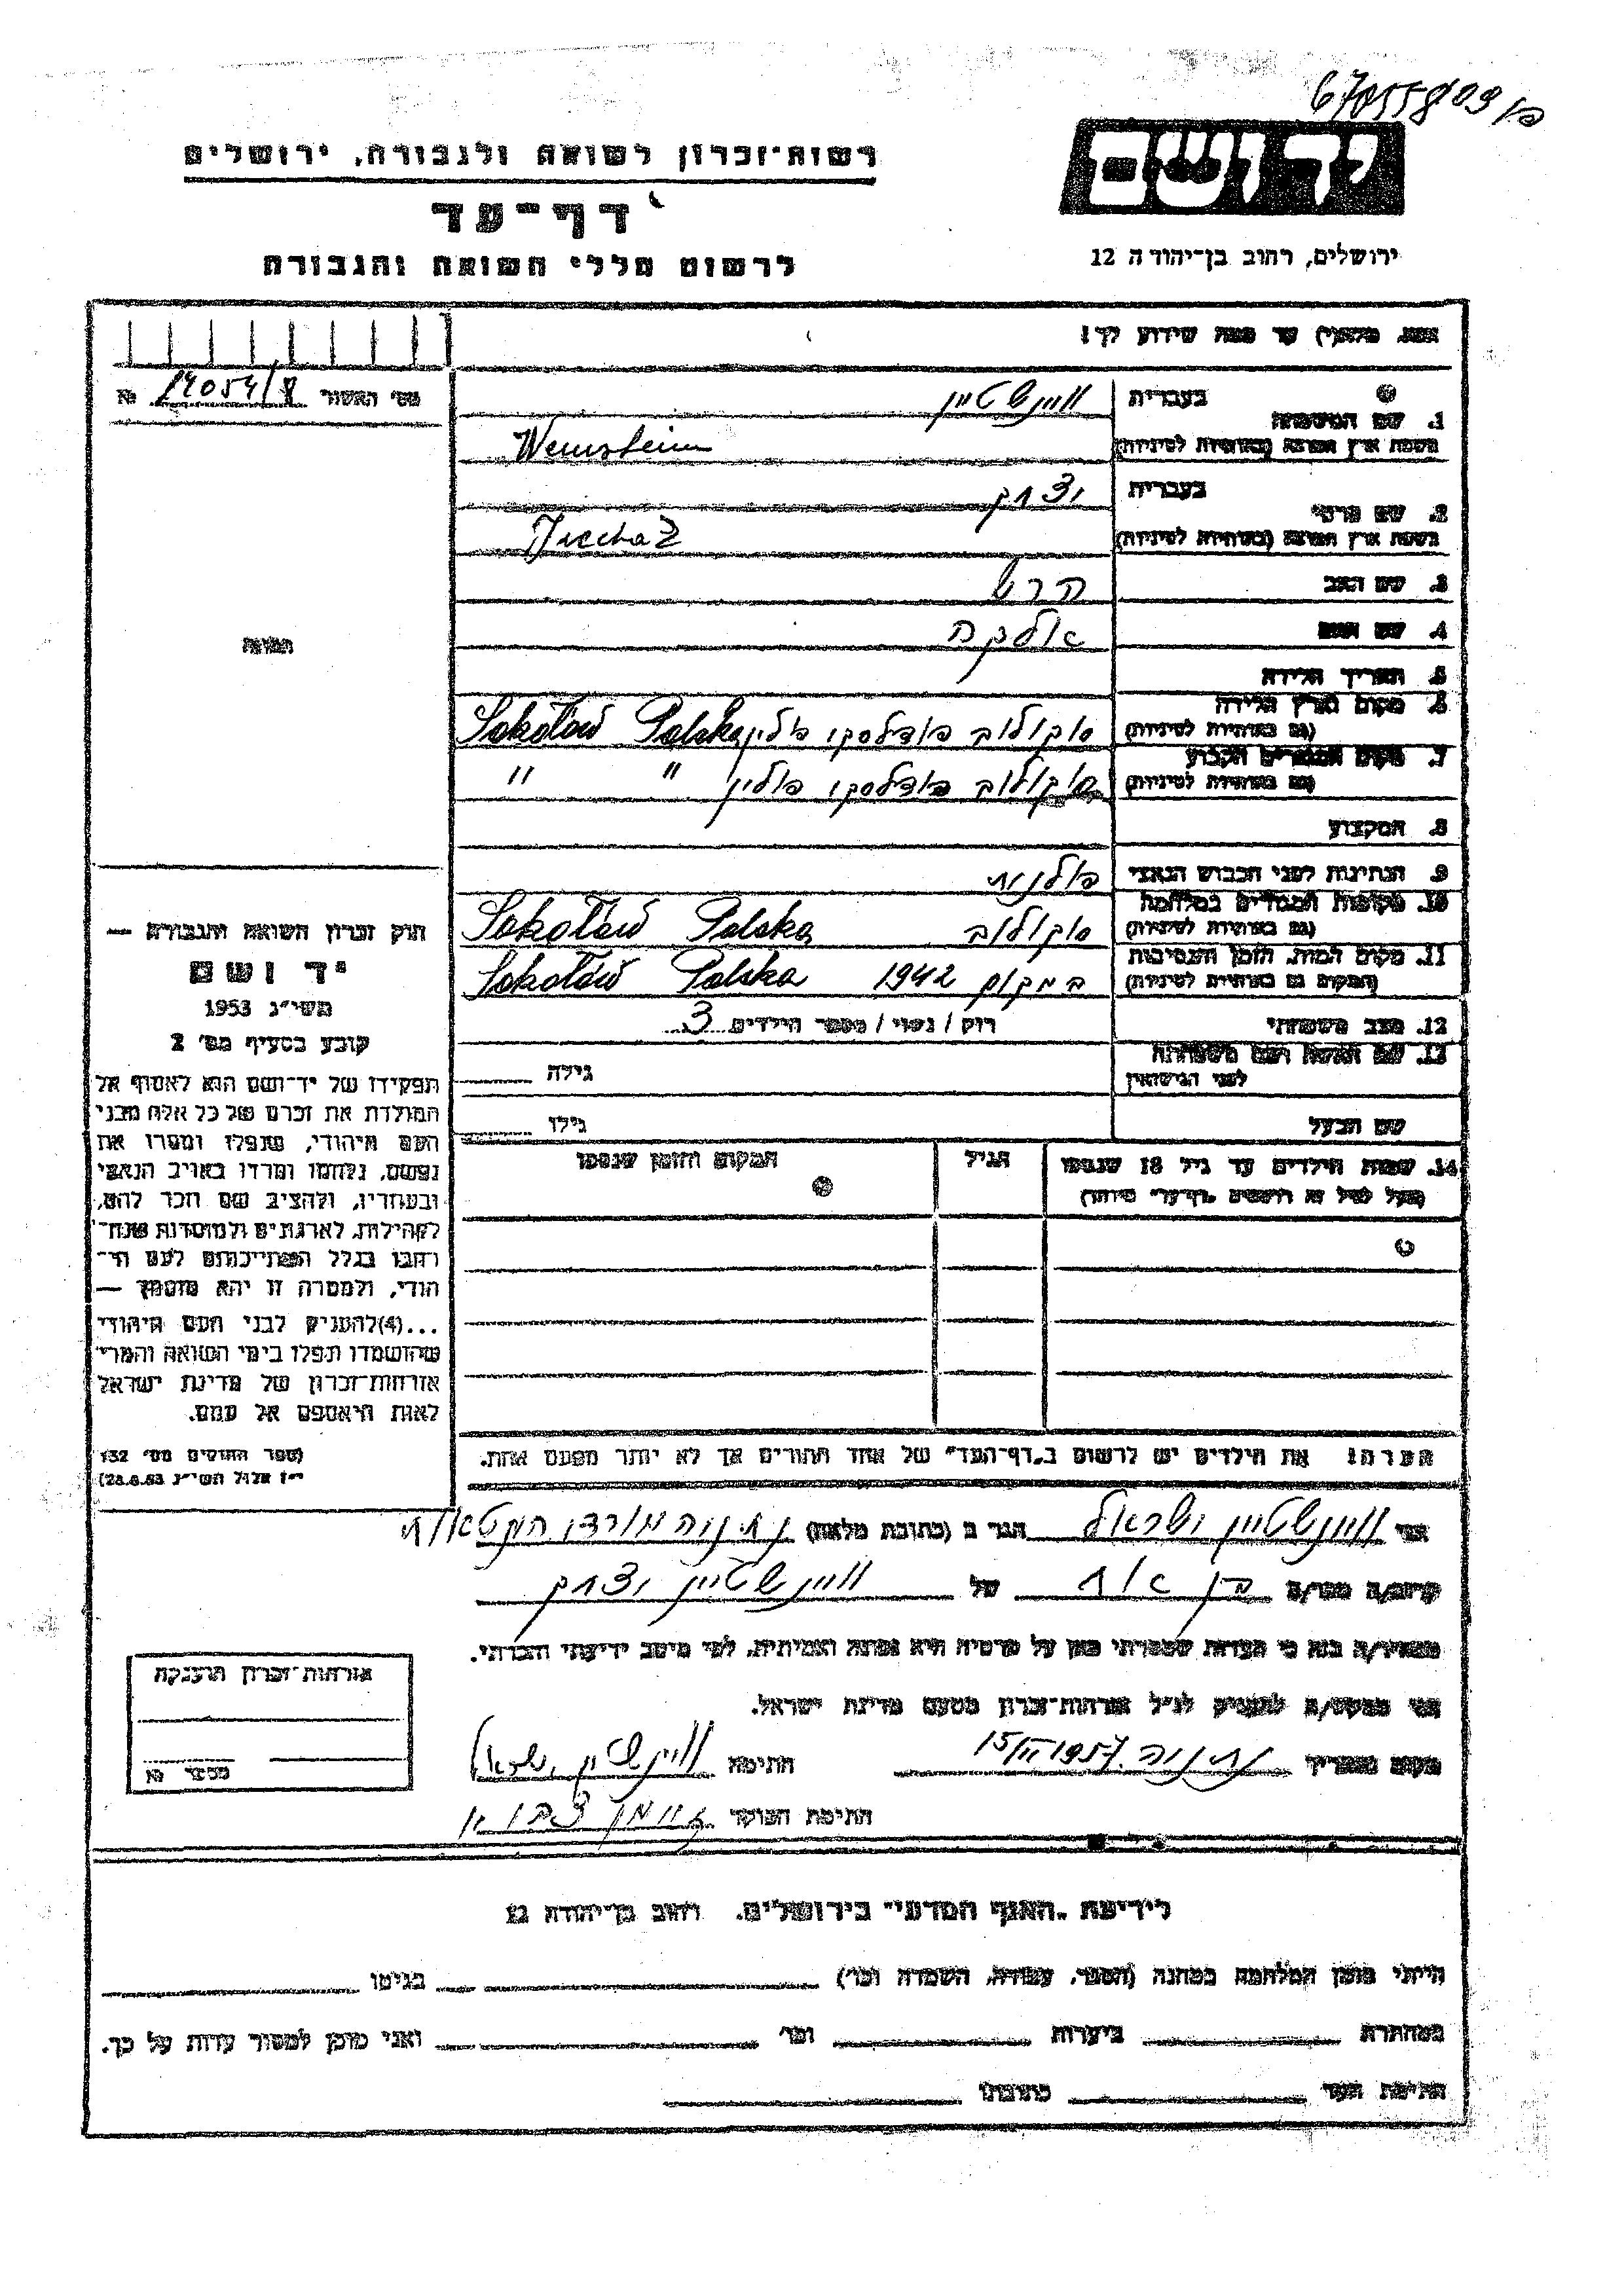 רשות־זכרון לשואה ולגבורה, ירושלים
דף־עד
לרשום חללי השואה והגבורה
יד ושם
ירושלים, רחוב בן־יהודה 12
נא למלא(י) עד כמה שידוע לך!
מס' האשור
1. שם המשפחה
בעברית ווינשטיין
בשפת ארץ המוצא (באותיות לטיניות) Weinstein
2. שם פרטי
בעברית יצחק
בשפת ארץ המוצא (באותיות לטיניות)
3. שם האב הרש
4. שם האם
5. תאריך הלידה
6. מקום וארץ הלידה
(גם באותיות לטיניות) סוקולוב פודלסקי פולין Sokołów Polska
7. מקום המגורים הקבוע
(גם באותיות לטיניות) סוקולוב פודלסקי פולין " "
8. המקצוע
9. הנתינות לפני הכבוש הנאצי פולנית
10. מקומות המגורים במלחמה
(גם באותיות לטיניות) סוקולוב Sokołów Polska
11. מקום המות, הזמן והנסיבות
(המקום גם באותיות לטיניות) במקום 1942 Sokołów Polska
12. מצב משפחתי רווק / נשוי / מספר הילדים 3
13. שם האשה ושם משפחתה
לפני הנישואין גילה
שם הבעל גילו
14. שמות הילדים עד גיל 18 שנספו הגיל המקום והזמן שנספו
(מעל לגיל זה רושמים "דף־עד" מיוחד)
הערה: את הילדים יש לרשום ב"דף־העד" של אחד ההורים אך לא יותר מפעם אחת.
התמונה
חוק זכרון השואה והגבורה —
יד ושם
תשי"ג 1953
קובע בסעיף מס' 2
תפקידו של יד־ושם הוא לאסוף אל
המולדת את זכרם של כל אלה מבני
העם היהודי, שנפלו ומסרו את
נפשם, נלחמו ומרדו באויב הנאצי
ובעוזריו, ולהציב שם וזכר להם,
לקהילות, לארגונים ולמוסדות שנח־
רבו בגלל השתייכותם לעם הי־
הודי, ולמטרה זו יהא מוסמך —
...(4) להעניק לבני העם היהודי
שהושמדו ונפלו בימי השואה והמרי
אזרחות־זכרון של מדינת ישראל
לאות היאספם אל עמם.
(ספר החוקים מס' 132
י"ז אלול תשי"ג 28.8.53)
אני ווינשטיין ישראל הגר ב (כתובת מלאה) נתניה
קרוב/ה מצד/ה בן אח של ווינשטיין יצחק
מצהיר/ה בזה כי העדות שמסרתי כאן על פרטיה היא נכונה ואמיתית, לפי מיטב ידיעתי והכרתי.
אני מבקש/ת להעניק לנ"ל אזרחות־זכרון מטעם מדינת ישראל.
מקום ותאריך נתניה חתימה ווינשטיין ישראל
חתימת הפוקד
אזרחות־זכרון הוענקה
מספר
לידיעת "האגף המדעי" בירושלים. רחוב בן־יהודה 12
הייתי בזמן המלחמה במחנה (הסגר, עבודה, השמדה וכו') בגיטו
במחתרת ביערות וכו' ואני מוכן למסור עדות על כך.
חתימת העד כתובתו